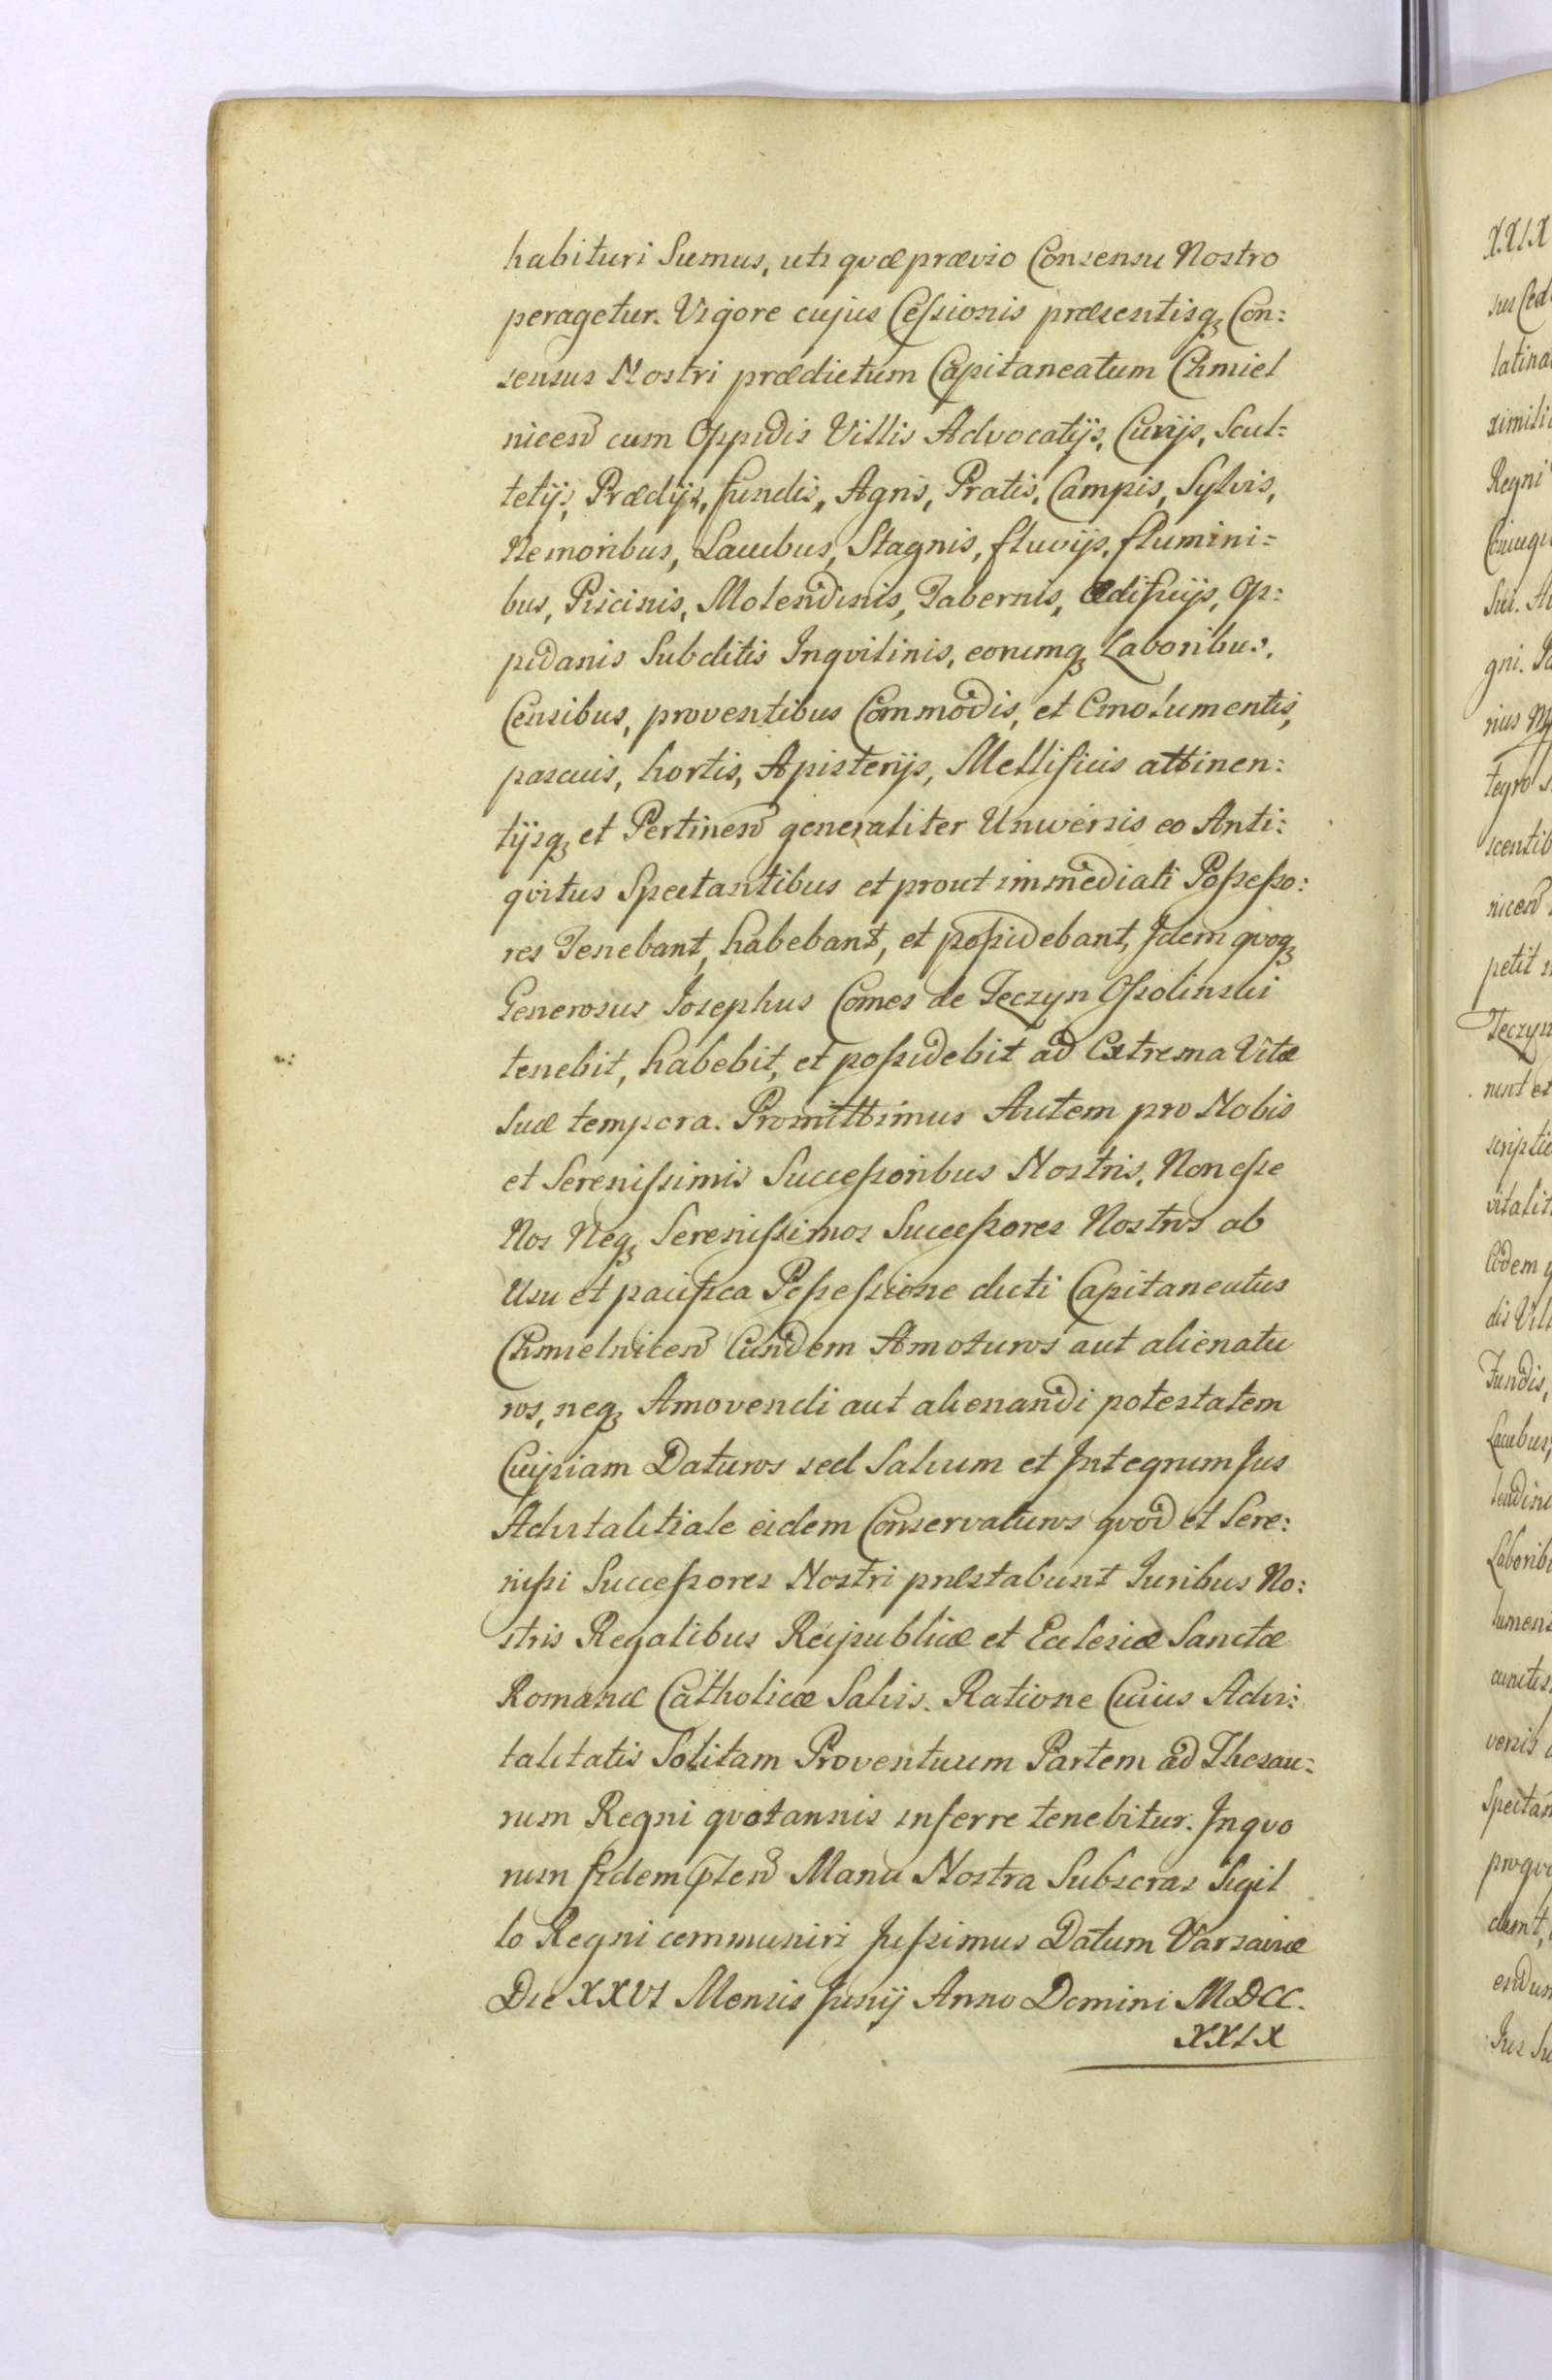 habituri Sumus, uti qvæ prævio Consensu Nostro
peragetur. Vigore cujus Cessionis præsentisq; Con:
sensus Nostri prædictum Capitaneatum Chmiel
nicen cum Oppidis Villis Advocatijs, Curijs, Scul=
tetijs, Prædijs, fundis, Agris, Pratis, Campis, Sylvis,
Nemoribus, Lacubus, Stagnis, fluvijs, flumini=
bus, Piscinis, Molendinis, Tabernis, Ædificijs, Op:
pidanis Subditis Inqvilinis, eorumq; Laboribus,
Censibus, proventibus Commodis, et Emolumentis,
pascuis, hortis, Apisterijs, Mellificis attinen:
tijsq; et Pertinen generaliter Universis eo Anti:
qvitus Spectantibus et prout immediati Possesso:
res Tenebant, habebant, et possidebant, Idem qvoq;
Generosus Josephus Comes de Teczyn Ossolinski
tenebit, habebit, et possidebit ad Extrema Vitæ
Suæ tempora. Promittimus Autem pro Nobis
et Serenissimis Successoribus Nostris, Non esse
Nos Neq; Serenissimos Successores Nostros ab
Usu et pacifica Possessione dicti Capitaneatus
Chmielnicen Eundem Amoturos aut alienatu
ros, neq; Amovendi aut alienandi potestatem
Cuipiam Daturos sed Salvum et Integrum Jus
Advitalitiale eidem Conservaturos qvod et Sere:
nissi Successores Nostri præstabunt Juribus No:
stris Regalibus Reipublicæ et Ecclesiæ Sanctæ
Romanæ Catholicæ Salvis. Ratione Cuius Advi:
talitatis Solitam Proventuum Partem ad Thesau:
rum Regni qvotannis inferre tenebitur. In qvo
rum fidem pñten Manu Nostra Subscras Sigil
lo Regni communiri Jussimus Datum Varsaviæ
Die XXVI Mensis Junij Anno Domini MDCC.
XXIX